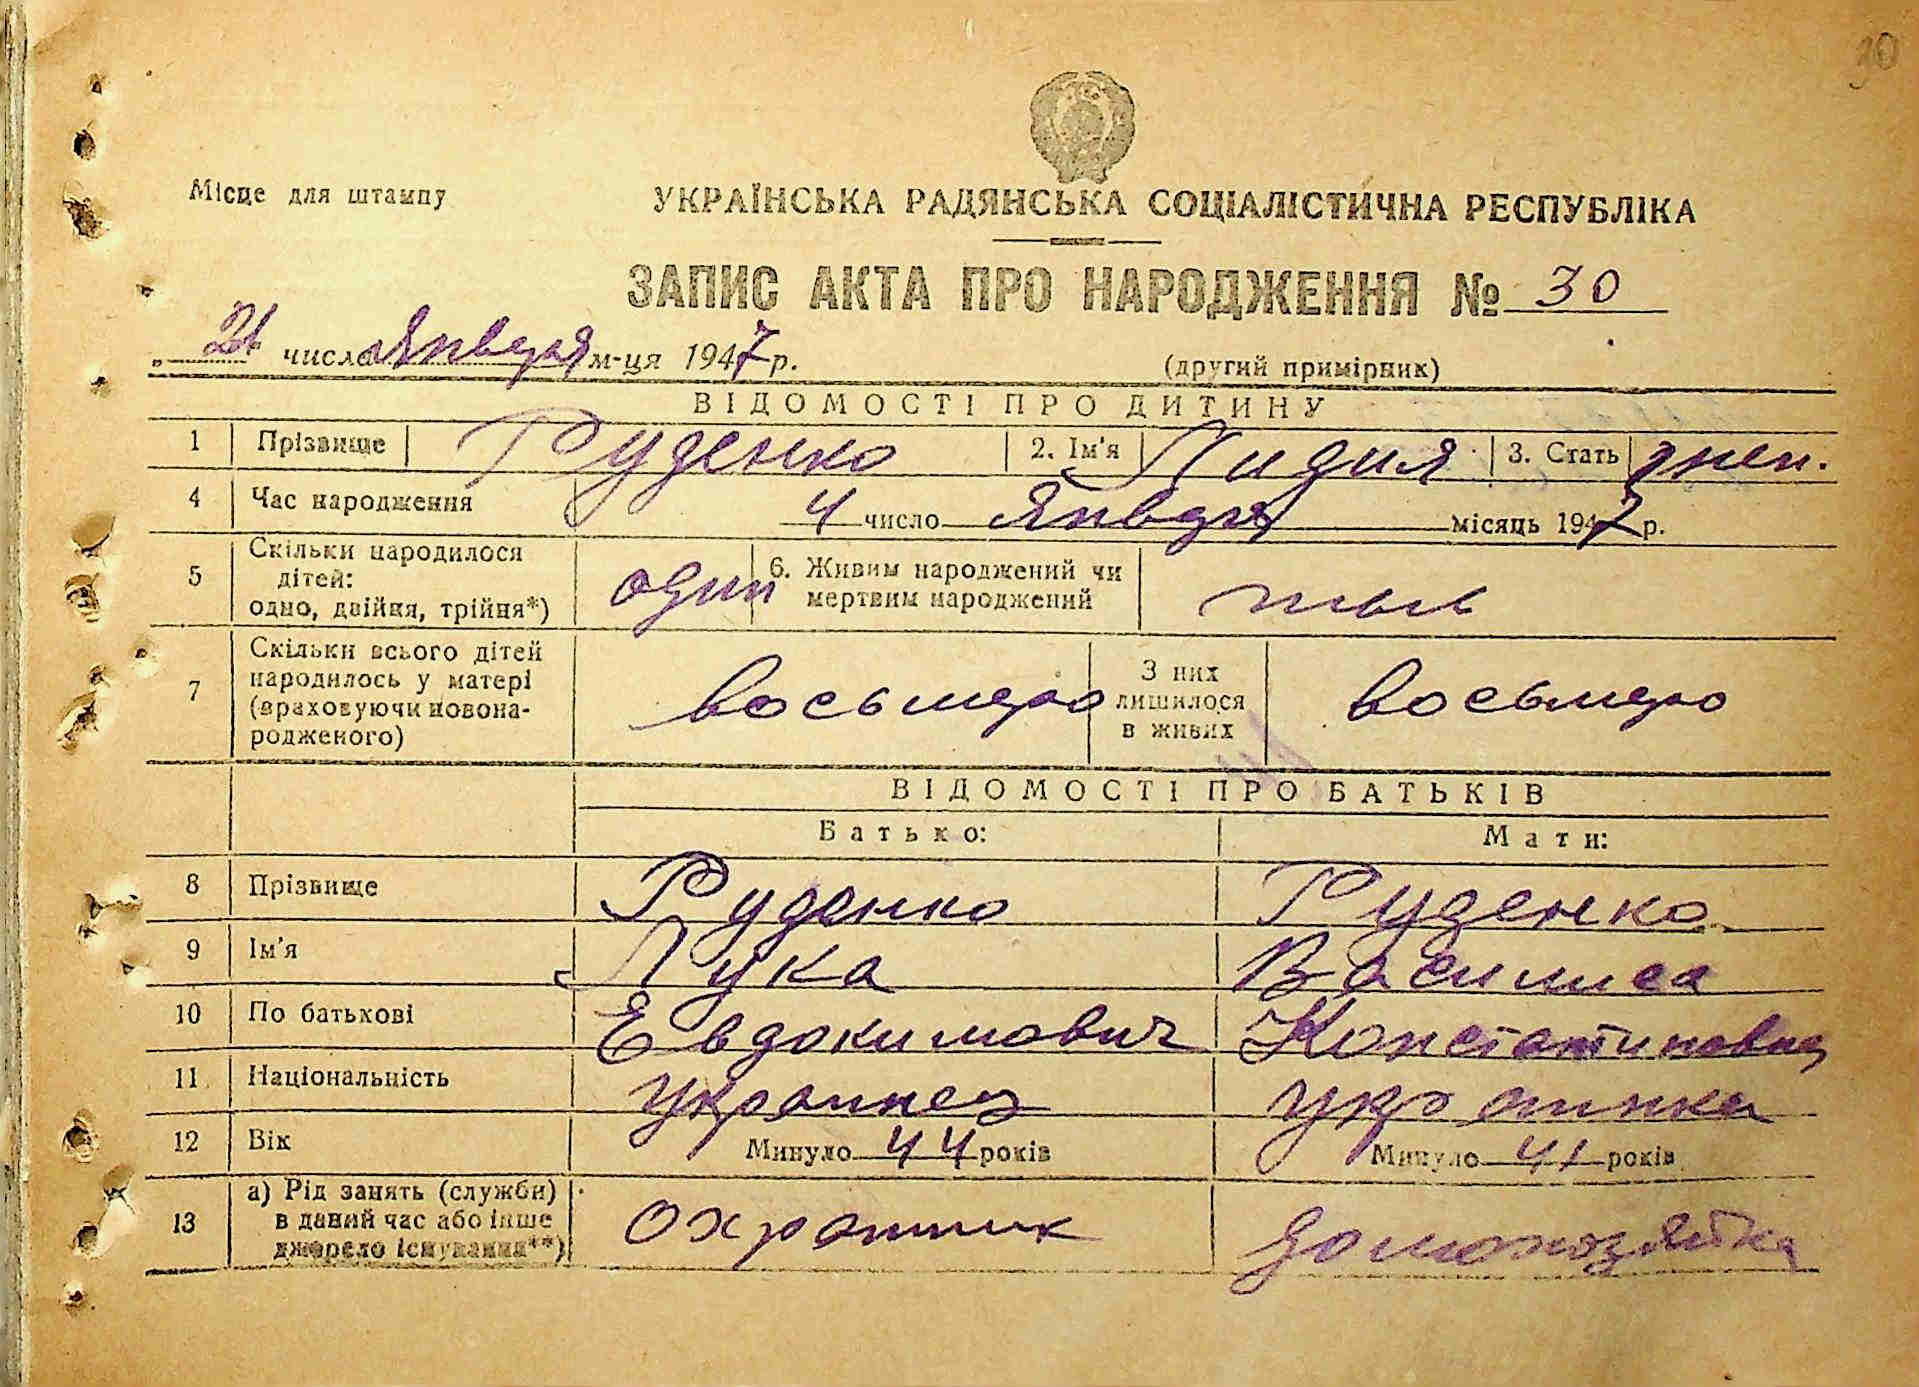 Місце для штампу
УКРАЇНСЬКА РАДЯНСЬКА СОЦІАЛІСТИЧНА РЕСПУБЛІКА
ЗАПИС АКТА ПРО НАРОДЖЕННЯ № 30
„ 21 числа Января м-ця 1947 р.
(другий примірник)
ВІДОМОСТІ ПРО ДИТИНУ
1 Прізвище Руденко 2. Ім'я Лидия 3. Стать жен.
4 Час народження 4 число Января місяць 1947 р.
5 Скільки народилося дітей: одно, двійня, трійня*) один 6. Живим народжений чи мертвим народжений
7 Скільки всього дітей народилось у матері (враховуючи новонародженого) восьмеро З них лишилося в живих восьмеро
ВІДОМОСТІ ПРО БАТЬКІВ
Батько: Мати:
8 Прізвище Руденко Руденко
9 Ім'я Лука Василиса
10 По батькові Евдокимович Константиновна
11 Національність Украинец украинка
12 Вік Минуло 44 років Минуло 41 років
13 а) Рід занять (служби) в даний час або інше джерело існування**) Охранник домохозяйка